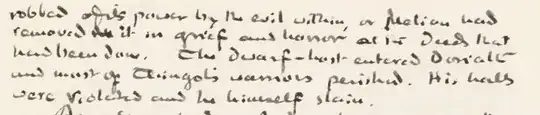 robbed of its power by the evil within, or Melian had
removed it in grief and horror at the deeds that
had been done. The Dwarf-host entered Doriath
and most of Thingol's warriors perished. His halls
were violated and he himself slain.